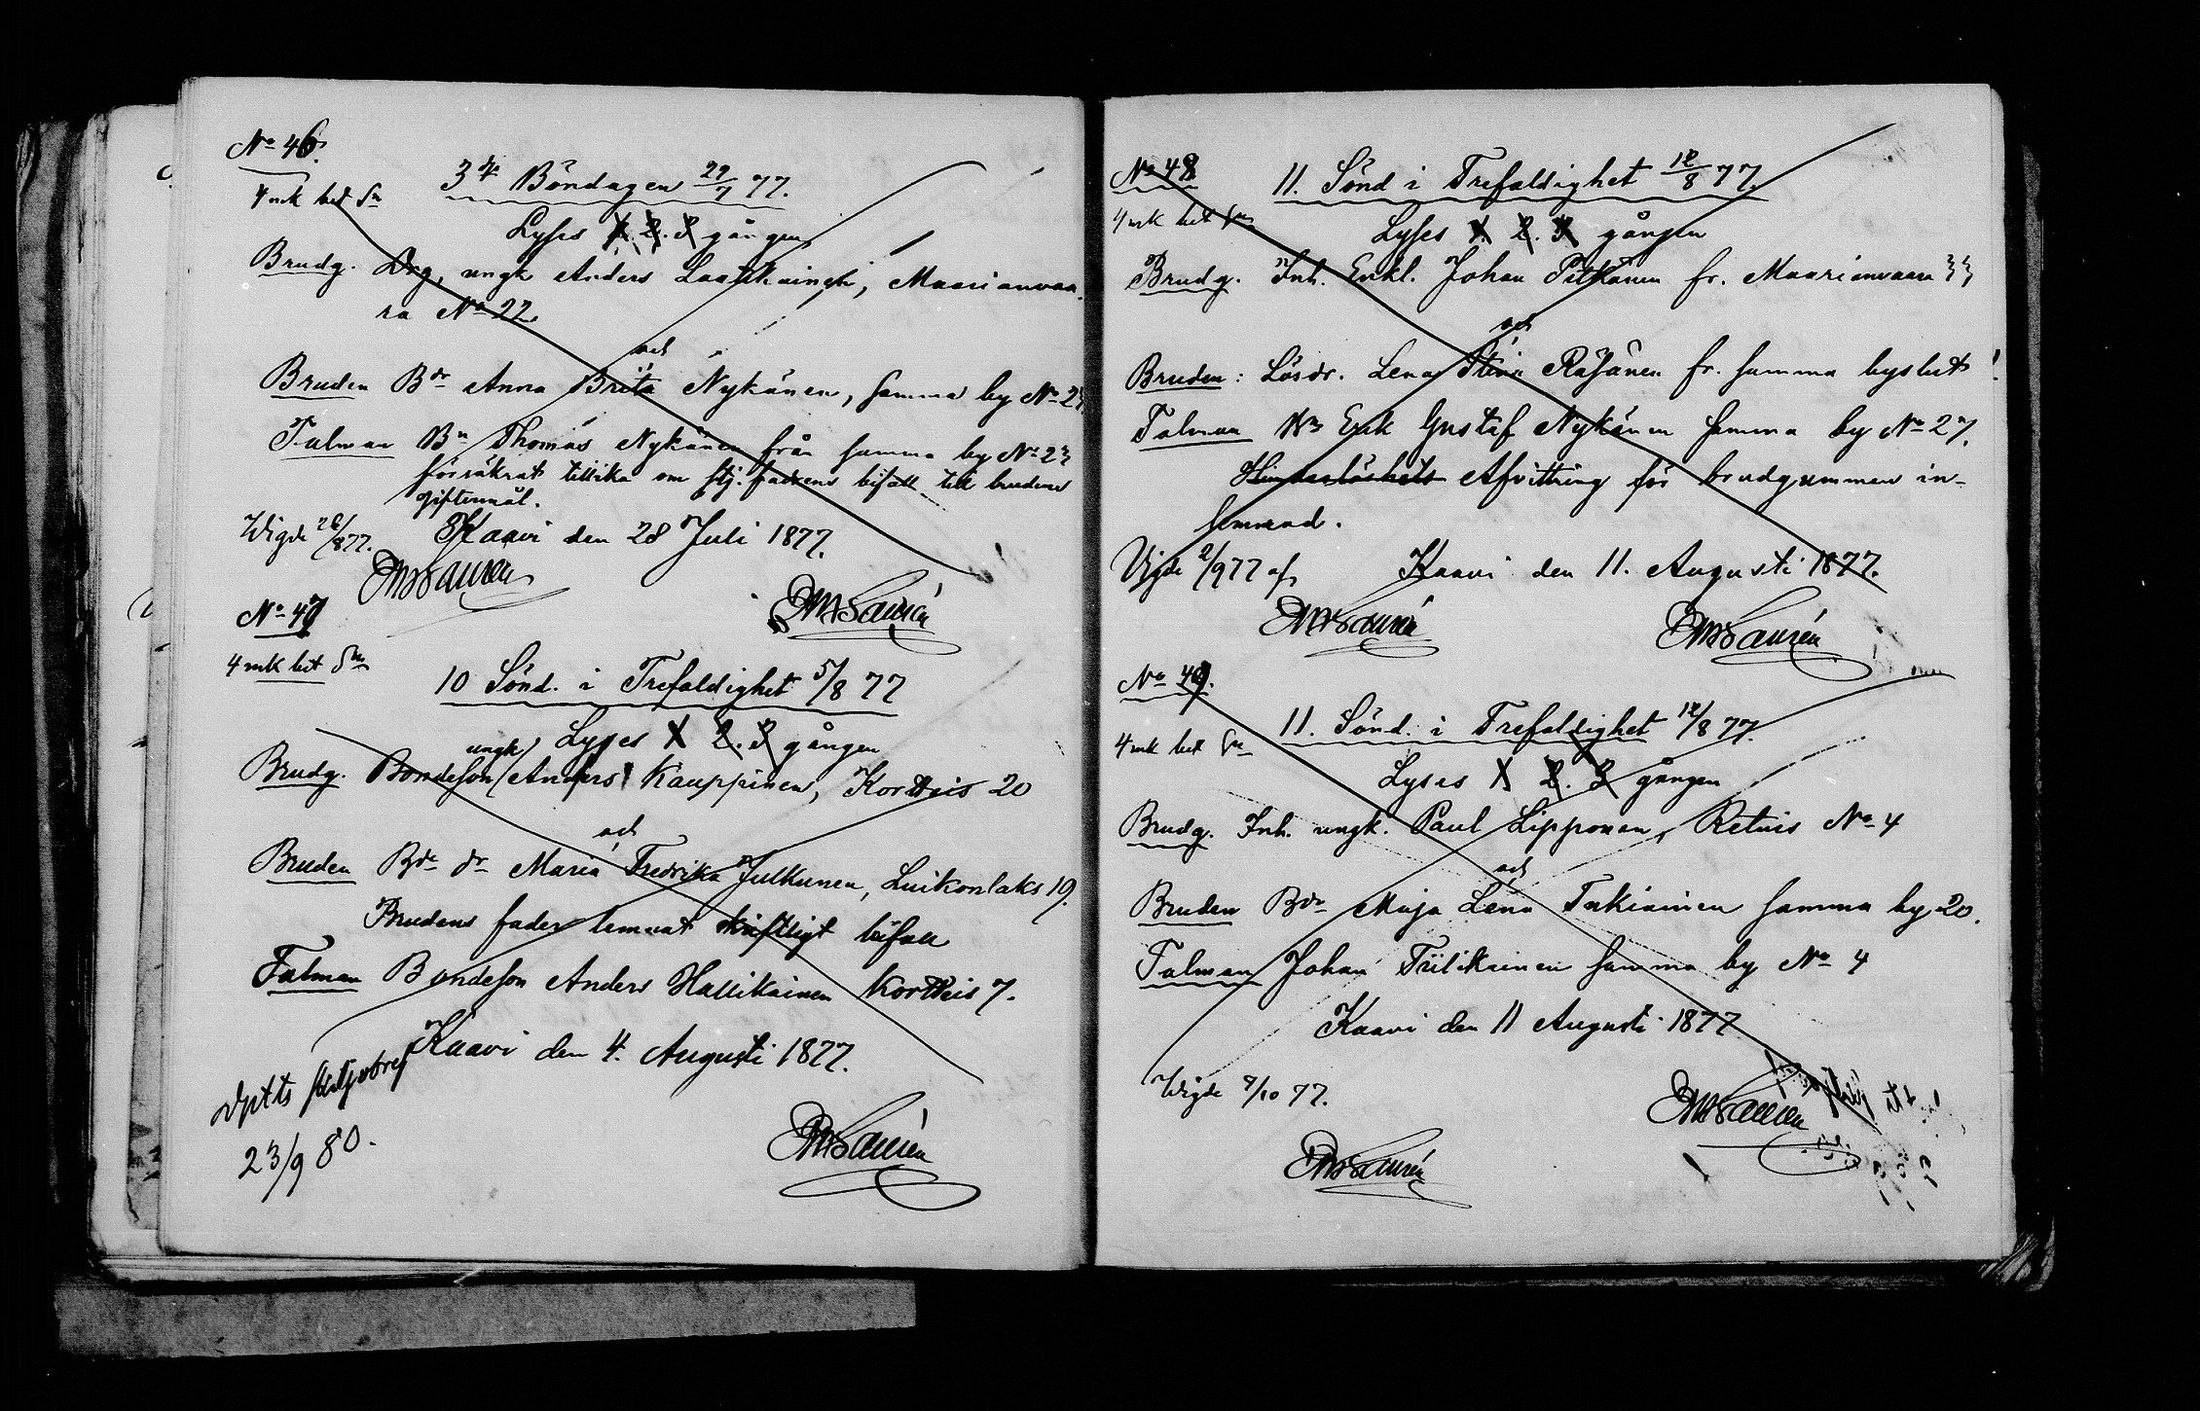 No 46.
4 mk bet Sn
3dje Böndagen 29/7 77.
Lyses 1. 2. 3 gången
Brudg. Drg, ungk Anders Laatikainen, Maarianvaa-
ra No 22.
och
Bruden Bdr Anna Brita Nykänen, samma by No 27
Talman Bn Thomas Nykänen från samma by No 27
försäkrat tillika om stj.fadrens bifall till brudens
giftermål.
Wigde 26/877. Kaavi den 28 Juli 1877.
No 47
4 mk bet Sn
10 Sönd. i Trefaldighet 5/8 77
Lyses 1 2. 3 gången
Brudg. Bondeson (ungk) Anders Kauppinen, Kortteis 20
och
Bruden Bde dr Maria Fredrika Julkunen, Luikonlaks 19.
Brudens fader lemnat skriftligt bifall
Talman Bondeson Anders Hallikainen Kortteis 7.
Kaavi den 4. Augusti 1877.
23/9 80.
No 48
4 mk bet Sn
11. Sönd i Trefaldighet 12/8 77.
Lyses 1 2. 3 gången
Brudg. Inh. Enkl. Johan Pitkänen fr. Maarianvaara 33
och
Bruden: Lösdr. Lena Stina Räsänen fr. samma byslut
Talman Erik Gustaf Nykänen samma by No 27.
Hinderlöshets Afvittring för brudgummen in-
lemnad.
Vigde 2/9 77 af Kaavi den 11. Augusti 1877.
No 49.
4 mk bet Sn
11. Sönd. i Trefaldighet 12/8 77.
Lyses 1 2. 3 gången
Brudg. Inh. ungk. Paul Lipponen, Retuis No 4
och
Bruden Bdr Maja Lena Takiainen samma by 20.
Talman Johan Tiilikainen samma by No 4
Kaavi den 11 Augusti 1877
Wigde 7/10 77.